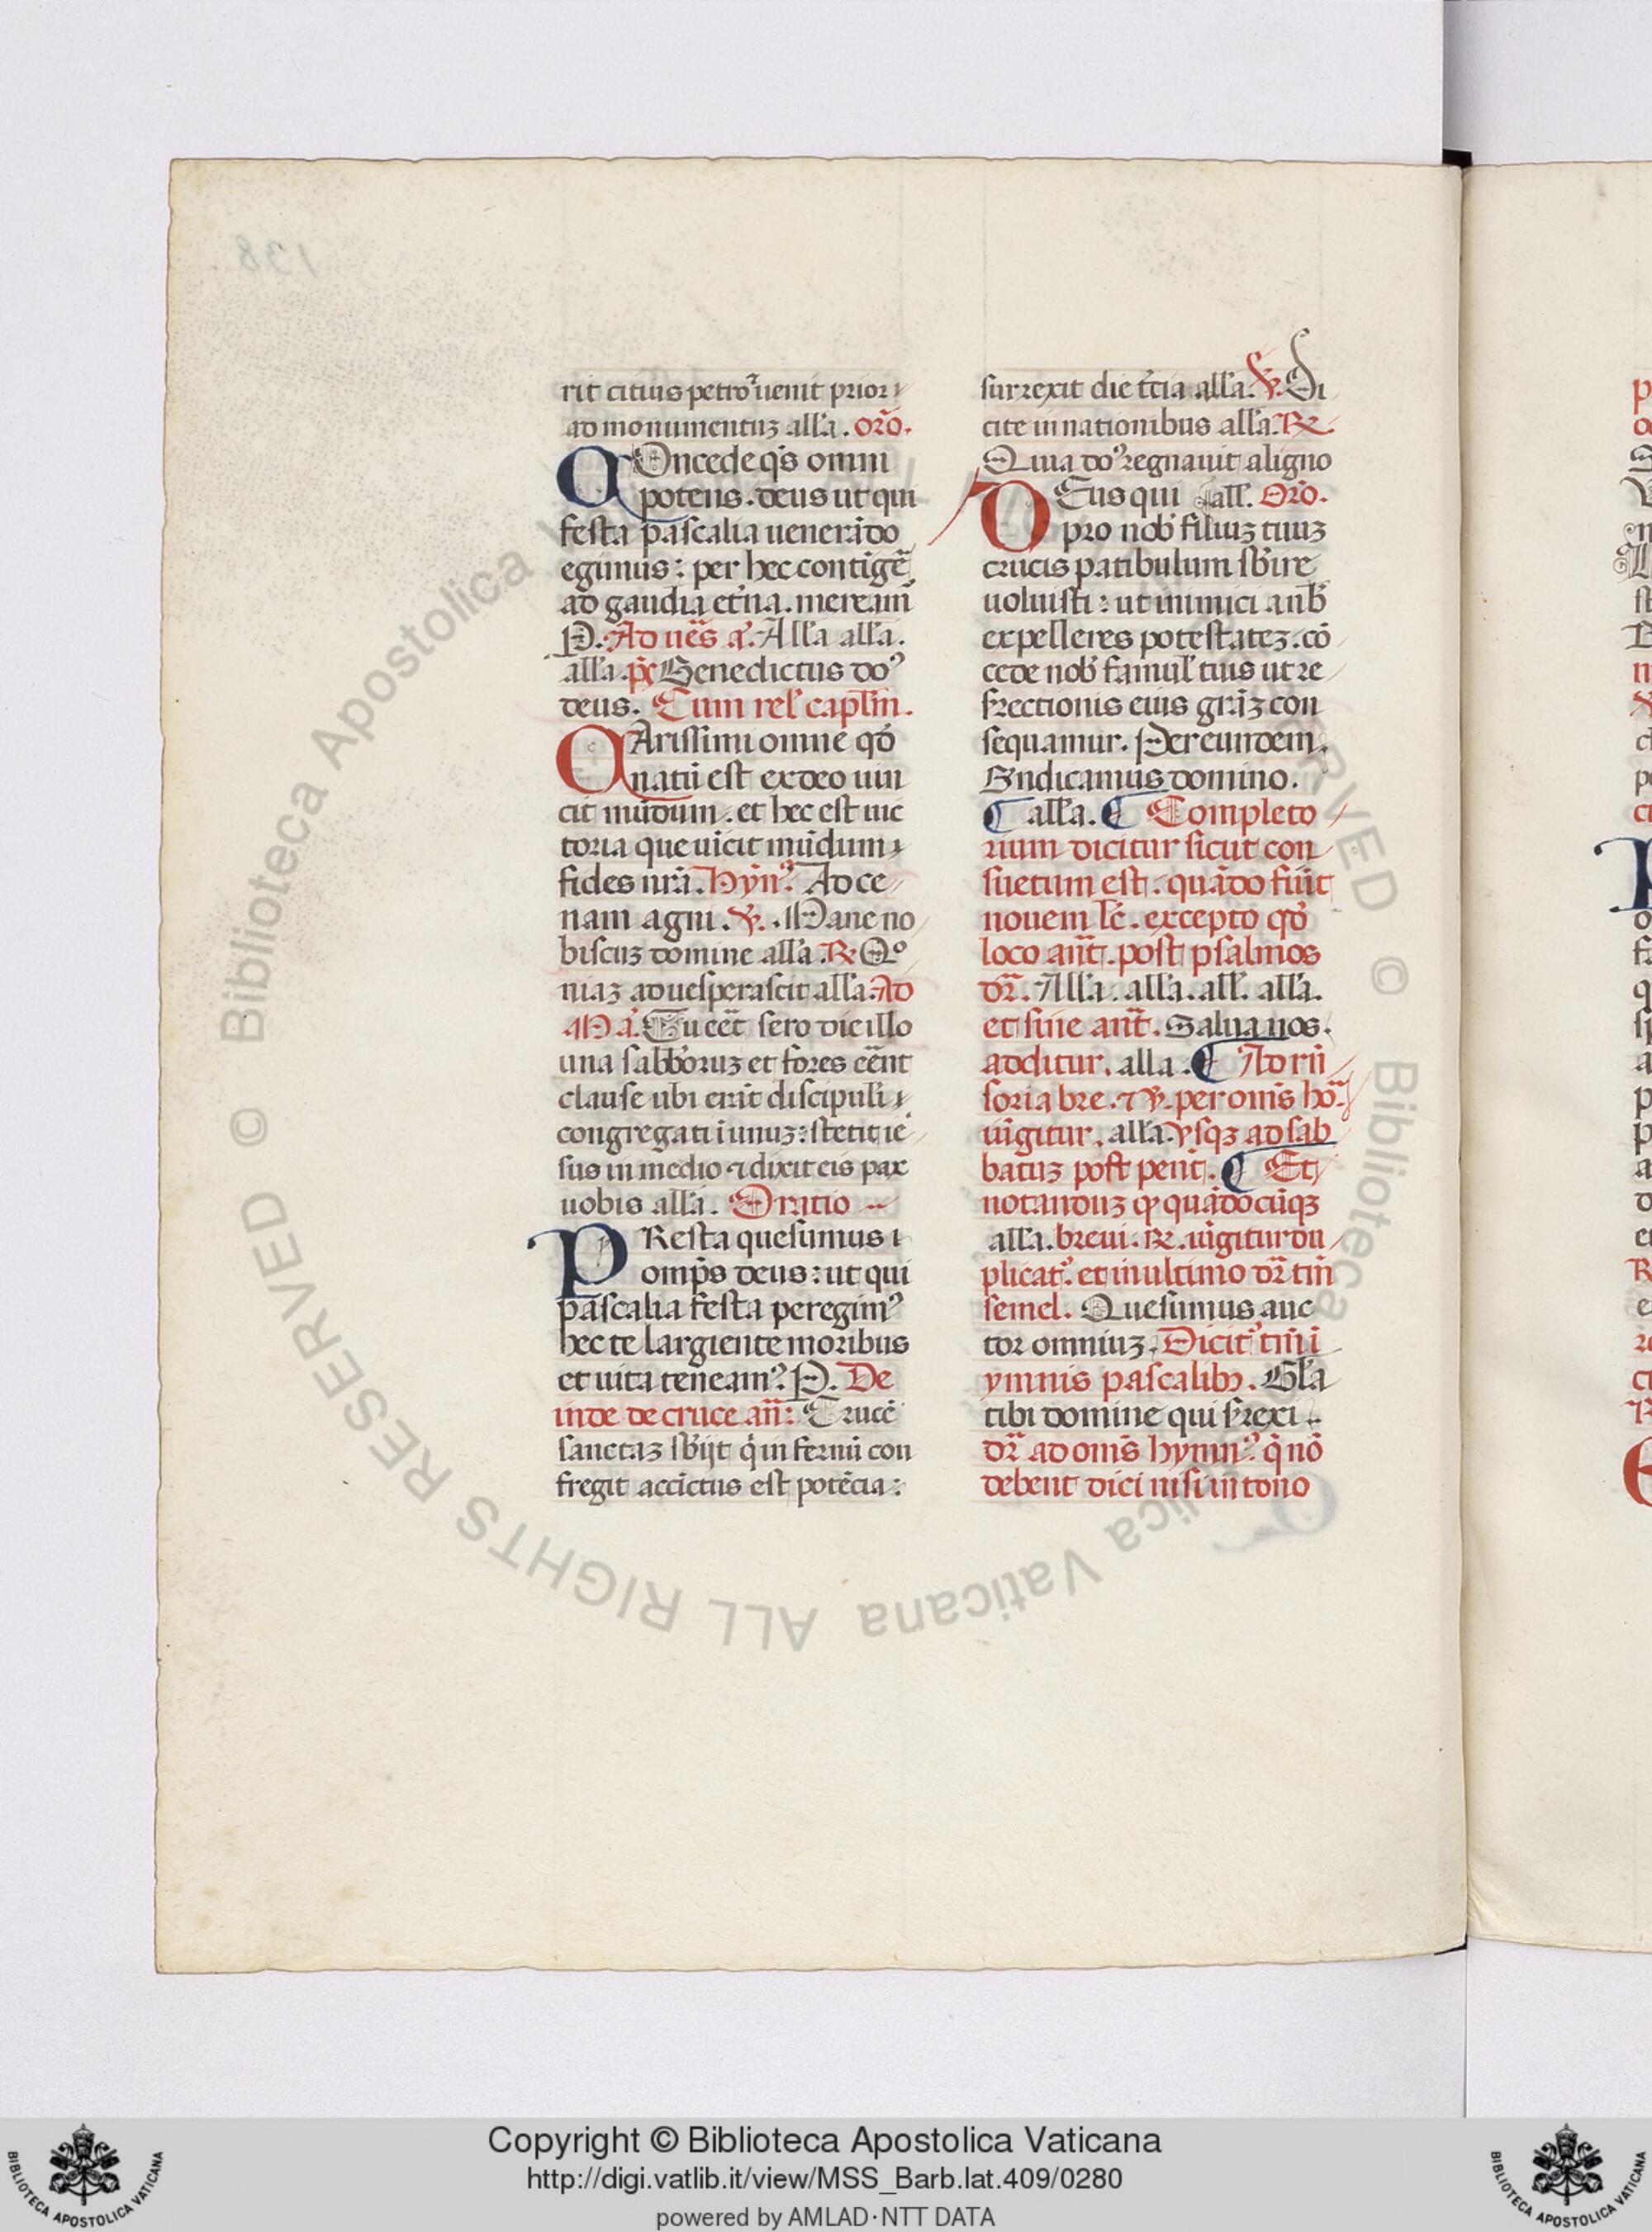 rit citius petro ⁊ uenit prior
ad monumentuʒ all'a. or̃o.
COncede q̃s omni
potens. deus ut qui
festa pascalia uenerãdo
egimus: per hec contigẽ
ad gaudia et'na. mereamͬ
P. Ad ues̃ a'. All'a all'a.
all'a. p̃s Benedictus do⁹
deus. Cum rel' capl'm.
CArissimi omne qd̾
natũ est ex deo uin
cit mũdum. et hec est uic
toria que uicit mũdum
fides nr̃a. Hyn̄⁹ Ad ce
nam agni. ℣. Mane no
biscuʒ domine all'a. ℞ Qo
niaʒ aduesperascit all'a. Ad
Ma'. Cu eẽt sero die illo
una sabb'oruʒ et fores eẽnt
clause ubi erãt discipuli
congregati ĩ unuʒ: stetit ie
sus in medio ⁊ dixit eis pax
uobis all'a. Oratio
PResta quesumus
omp̃s deus: ut qui
pascalia festa peregim⁹
hec te largiente moribus
et uita teneam⁹. P. De
inde de cruce an̄: Crucẽ
sanctaʒ sb'ijt q' infernũ con
fregit accinctus est potẽcia:
surrexit die t'cia all'a. ℣. Di
cite in nationibus all'a. ℞.
Quia do⁹ regnauit a ligno
DEus qui all'. Or̃o.
pro nob' filiuʒ tuuʒ
crucis patibulum sb'ire
uoluisti: ut inimici a nb'
expelleres potestateʒ. cõ
cede nob' famul' tuis ut re
surrectionis eius gr̃aʒ con
sequamur. Per eundem.
Bndicamus domino.
all'a. Completo
rium dicitur sicut con
suetum est. quãdo fũt
nouem lc̃. excepto qd̾
loco ant̃. post psalmos
dr̃. All'a. all'a. all'. all'a.
et sine ant̃. Salua nos.
additur. alla. Ad rñ
soria bre. ⁊ ℣. per om̃s ho.
iũgitur. all'a. Vsqʒ ad sab
batuʒ post pent̃. Et
notanduʒ ꝙ quãdocũqʒ
all'a. breui. ℞. iũgitur du
plicat⁹. et in ultimo dr̃ tm̃
semel. Quesumus auc
tor omniuʒ. Dicit⁹ tm̃ ĩ
ymnis pascalibʒ. Gl'a
tibi domine qui s'rexi..
dr̃ ad om̃s hymn⁹. q' nõ
debent dici nisi in tono
Copyright © Biblioteca Apostolica Vaticana
http://digi.vatlib.it/view/MSS_Barb.lat.409/0280
powered by AMLAD·NTT DATA